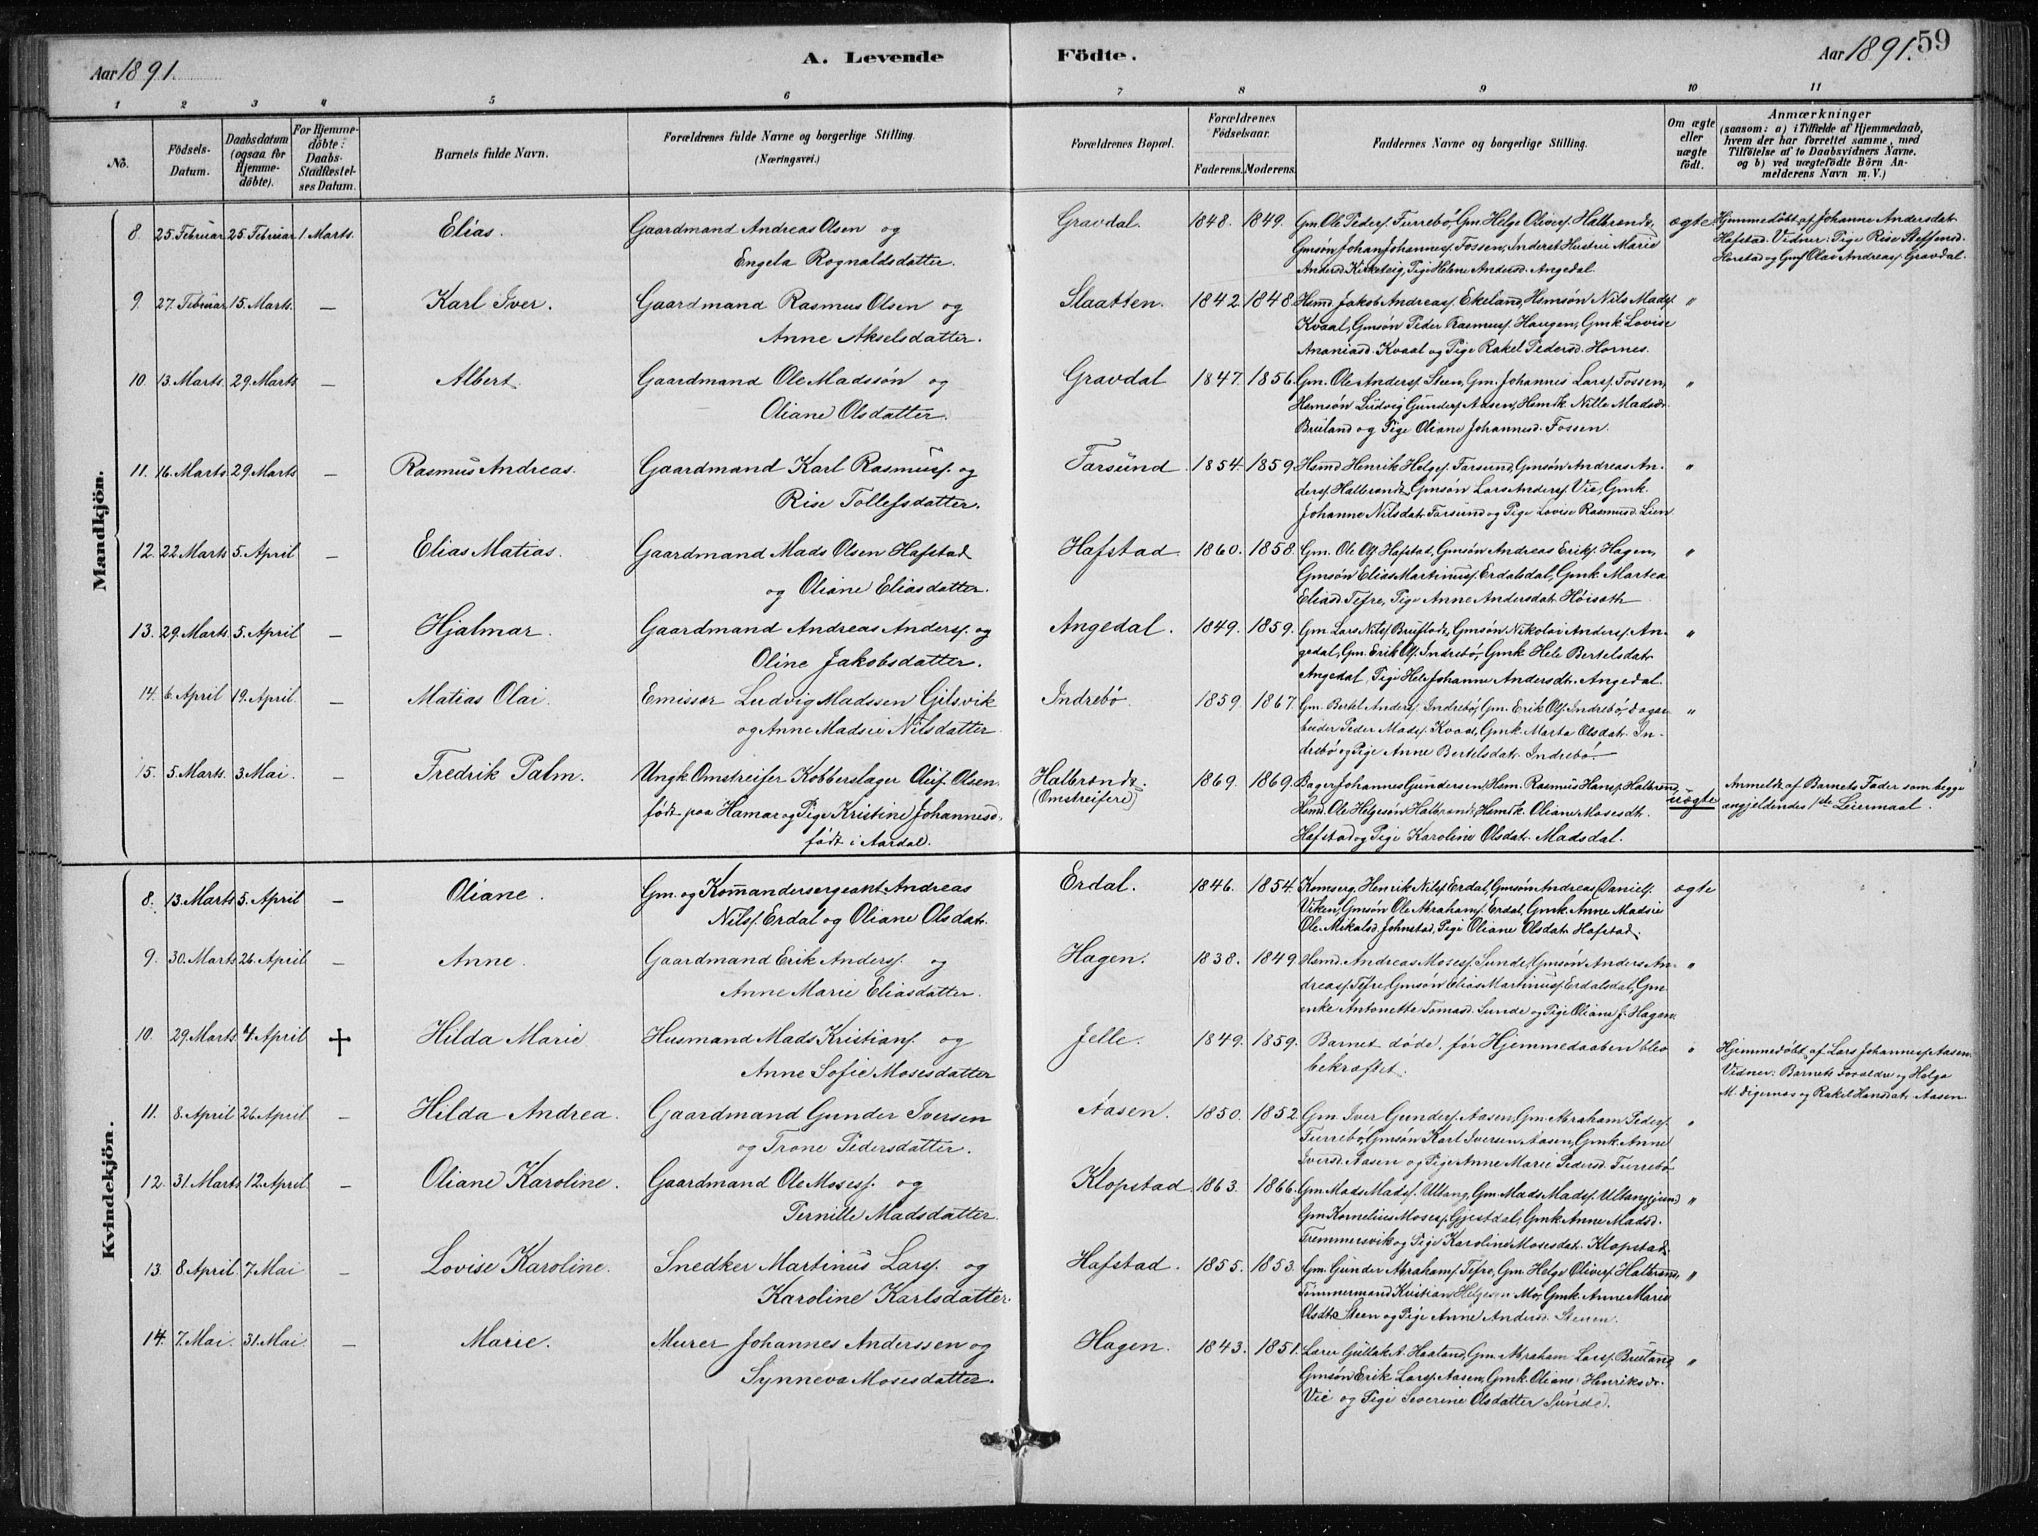 Aar 1891.
A. Levende Födte.
Aar 1891.
59
1 2 3 4 5 6 7 8 9 10 11
No.
Födsels-Datum.
Daabsdatum (ogsaa for Hjemme-döbte).
For Hjemme-döbte: Daabs-Stadfæstel-ses Datum.
Barnets fulde Navn.
Forældrenes fulde Navne og borgerlige Stilling. (Næringsvei.)
Forældrenes Bopæl.
Forældrenes Födselsaar.
Faderens. Moderens.
Faddernes Navne og borgerlige Stilling.
Om ægte eller uægte födt.
Anmærkninger
(saasom: a) i Tilfælde af Hjemmedaab,
hvem der har forrettet samme, med
Tilföielse af to Daabsvidners Navne.
og b) ved uægtefödte Börn An-
melderens Navn m. V.)
Mandkjön.
8. 25 Februar 25 Februar 1 Marts. Elias. Gaardmand Andreas Olsen og
Engela Rognaldsdatter.
Gravdal. 1848. 1849. Gm. Ole Peders. Furrebö, Gm. Helge Olivers. Halbrendt,
Gmsön Johan Johannes. Fossen, Inderst Hustru Marie
Andersd. Kirketeig, Pige Helene Andersd. Angedal.
ægte Hjemmedöbt af Johanne Andersdat.
Hafstad. Vidner: Pige Rise Steffensd.
Horstad og Gms. Olai Andreas. Gravdal.
9. 27 Februar 15 Marts. — Karl Iver. Gaardmand Rasmus Olsen og
Anne Akselsdatter.
Slaatten. 1842. 1848. Hsmd. Jakob Andreas. Ekeland, Hsmsön Nils Mads.
Kvaal, Gmsön Peder Rasmus. Haugen, Gmk. Lovise
Ananiasd. Kvaal og Pige Rakel Pedersd. Hornes.
"
10. 13. Marts. 29. Marts — Albert. Gaardmand Ole Madssön og
Oliane Olsdatter.
Gravdal 1847. 1856. Gm. Ole Anders. Steen, Gm. Johannes Lars. Fossen,
Hsmsön Ludvig Gunders. Aasen, Hsmk. Nille Madsdr.
Breiland og Pige Oliane Johannesd. Fossen.
"
11. 16. Marts. 29 Marts — Rasmus Andreas. Gaardmand Karl Rasmus. og
Rise Tollefsdatter.
Farsund. 1854. 1859. Hsmd. Henrik Helges. Farsund, Gmsön Andreas An-
ders. Halbrendt, Gmsön Lars Anders. Vie, Gmk.
Johanne Nilsdat. Farsund og Pige Lovise Rasmusd. Lien
"
12. 22 Marts 5. April — Elias Matias. Gaardmand Mads Olsen Hafstad
og Oliane Eliasdatter.
Hafstad. 1860. 1858. Gm. Ole Ols. Hafstad, Gmsön Andreas Eriks. Hagen,
Gmsön Elias Martinus. Erdalsdal, Gmk. Martea
Eliasd. Tefre, Pige Anne Andersdat.
"
13. 29. Marts. 5. April — Hjalmar. Gaardmand Andreas Anders. og
Oline Jakobsdatter.
Angedal. 1849. 1859. Gm. Lars Nils. Gmsön Nikolai Anders. An-
gedal, Gm. Erik Ols. Indrebö, Gmk. Hele Bertelsdat.
Angedal, Pige Hele Johanne Andersdt. Angedal.
"
14. 6. April 19. April — Matias Olai. Emissær Ludvig Madssen Gilsvik
og Anne Madsie Nilsdatter
Indrebö. 1859. 1867. Gm. Bertel Anders. Indrebö, Gm. Erik Ols. Indrebö, Dagar-
beider Peder Mads. Kvaal, Gmk. Marta Olsdat. In-
drebö og Pige Anne Bertelsdat. Indrebö.
"
15. 5. Marts. 3. Mai. — Fredrik Palm. Ungk. Omstreifer Kobberslager Oluf Olsen.
född paa Hamar og Pige Kristine Johannesd.
född i Aardal.
Halbrendt.
(Omstreifere)
1869. 1869. Bager Johannes Gundersen, Hsm. Rasmus Hans. Halbrend,
Hsmd. Ole Helgesön Halbrendt, Hsmk. Oliane Mosesdt.
Hafstad og Pige Karoline Olsdat. Madsdal.
uægte Anmeldt af Barnets Fader som begge
angjeldendes 1ste Leiermaal.
Kvindekjön.
8. 13. Marts 5. April — Oliane. Gm. og Kommandersergeant Andreas
Nils. Erdal og Oliane Olsdat.
Erdal. 1846. 1854. Komserg. Henrik Nils. Erdal, Gmsön Andreas Daniels.
Viken, Gmsön Ole Abrahams. Erdal, Gmk. Anne Madsie
Ole-Mikalsd. Johnstad, Pige Oliane Olsdat. Hafstad.
ægte
9. 30. Marts 26. April — Anne. Gaardmand Erik Anders. og
Anne Marie Eliasdatter.
Hagen. 1838. 1849. Hsmd. Andreas Moses. Sunde, Gmsön Anders An-
dreas. Tefre, Gmsön Elias Martinus. Erdalsdal, Gm-
enke Antonette Tomasd. Sunde og Pige Oliane J. Hagen.
"
10. 29. Marts 4. April † Hilda Marie Husmand Mads Kristians. og
Anne Sofie Mosesdatter
Jelle. 1849. 1859. Barnet döde, för Hjemmedaaben blev
bekræftet.
" Hjemmedöbt af Lars Johannes. Aasen.
Vidner: Barnets Forældre og Helga
M. Digernæs og Rakel Hansdat. Aasen.
11. 8. April 26. April — Hilda Andrea. Gaardmand Gunder Iversen
og Trone Pedersdatter.
Aasen. 1850. 1852. Gm. Iver Gunders. Aasen, Gm. Abraham Peders.
Furrebö, Gmsön Karl Iversen Aasen, Gmk. Anne
Iversd. Aasen og Pige Anne Marie Pedersd. Furrebö
"
12. 31. Marts 12. April — Oliane Karoline. Gaardmand Ole Moses. og
Pernille Madsdatter.
Klopstad. 1863. 1866. Gm. Mads Mads. Ultang, Gm. Mads Mads.
Gm. Kornelius Moses. Gjestdal, Gmk. Anne Madsd.
Tremmersvik og Pige Karoline Mosesdat. Klopstad.
"
13. 8. April. 7. Mai — Lovise Karoline. Snedker Martinus Lars. og
Karoline Karlsdatter.
Hafstad. 1855. 1853. Gm. Gunder Abrahams. Tefre, Gm. Helge Olivers. Halbrend,
Tömmermand Kristian Helgesen Mo, Gmk. Anne Marie
Olsdt. Steen og Pige Anne Andersd. Stenen.
"
14. 7. Mai. 31. Mai. — Marie. Murer Johannes Anderssen og
Synneva Mosesdatter.
Hagen. 1843. 1851. Lærer Gullak A. Haaland, Gm. Abraham Lars. Breiland,
Gmsön Erik Lars. Aasen, Gmk. Oliane Henriksdr.
Vie og Pige Severine Olsdatter Sunde.
"